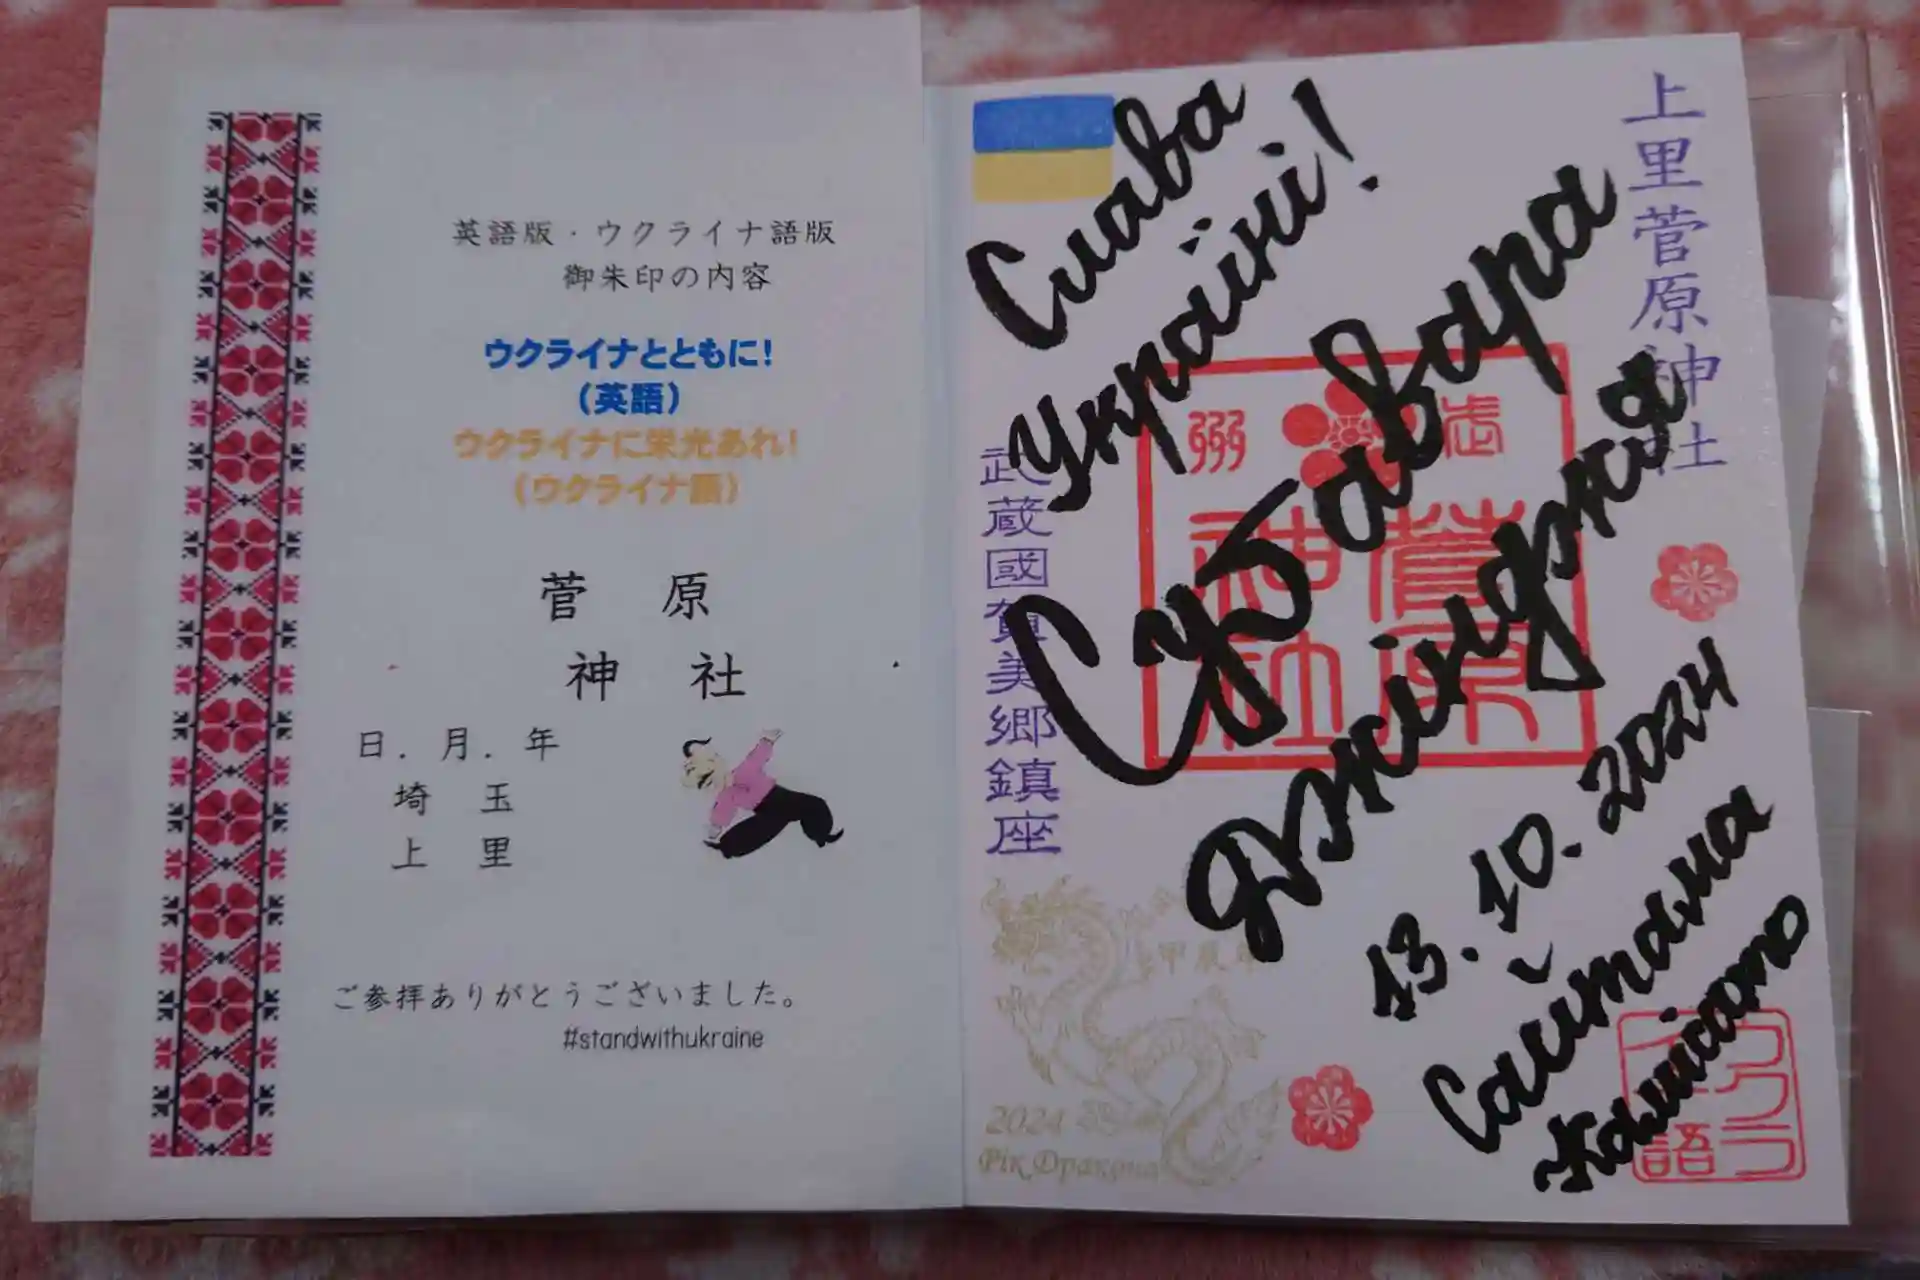 英語版・ウクライナ語版
御朱印の内容
ウクライナとともに！
（英語）
ウクライナに栄光あれ！
（ウクライナ語）
菅原
神社
日．月．年
埼玉
上里
ご参拝ありがとうございました。
#standwithukraine
上里菅原神社
Слава
Україні!
Суґавара
Джінджя
13.10.2024
Сайтама
Камісато
武蔵國賀美郷鎮座
菅原
神社
甲辰年
2024
Рік Дракона